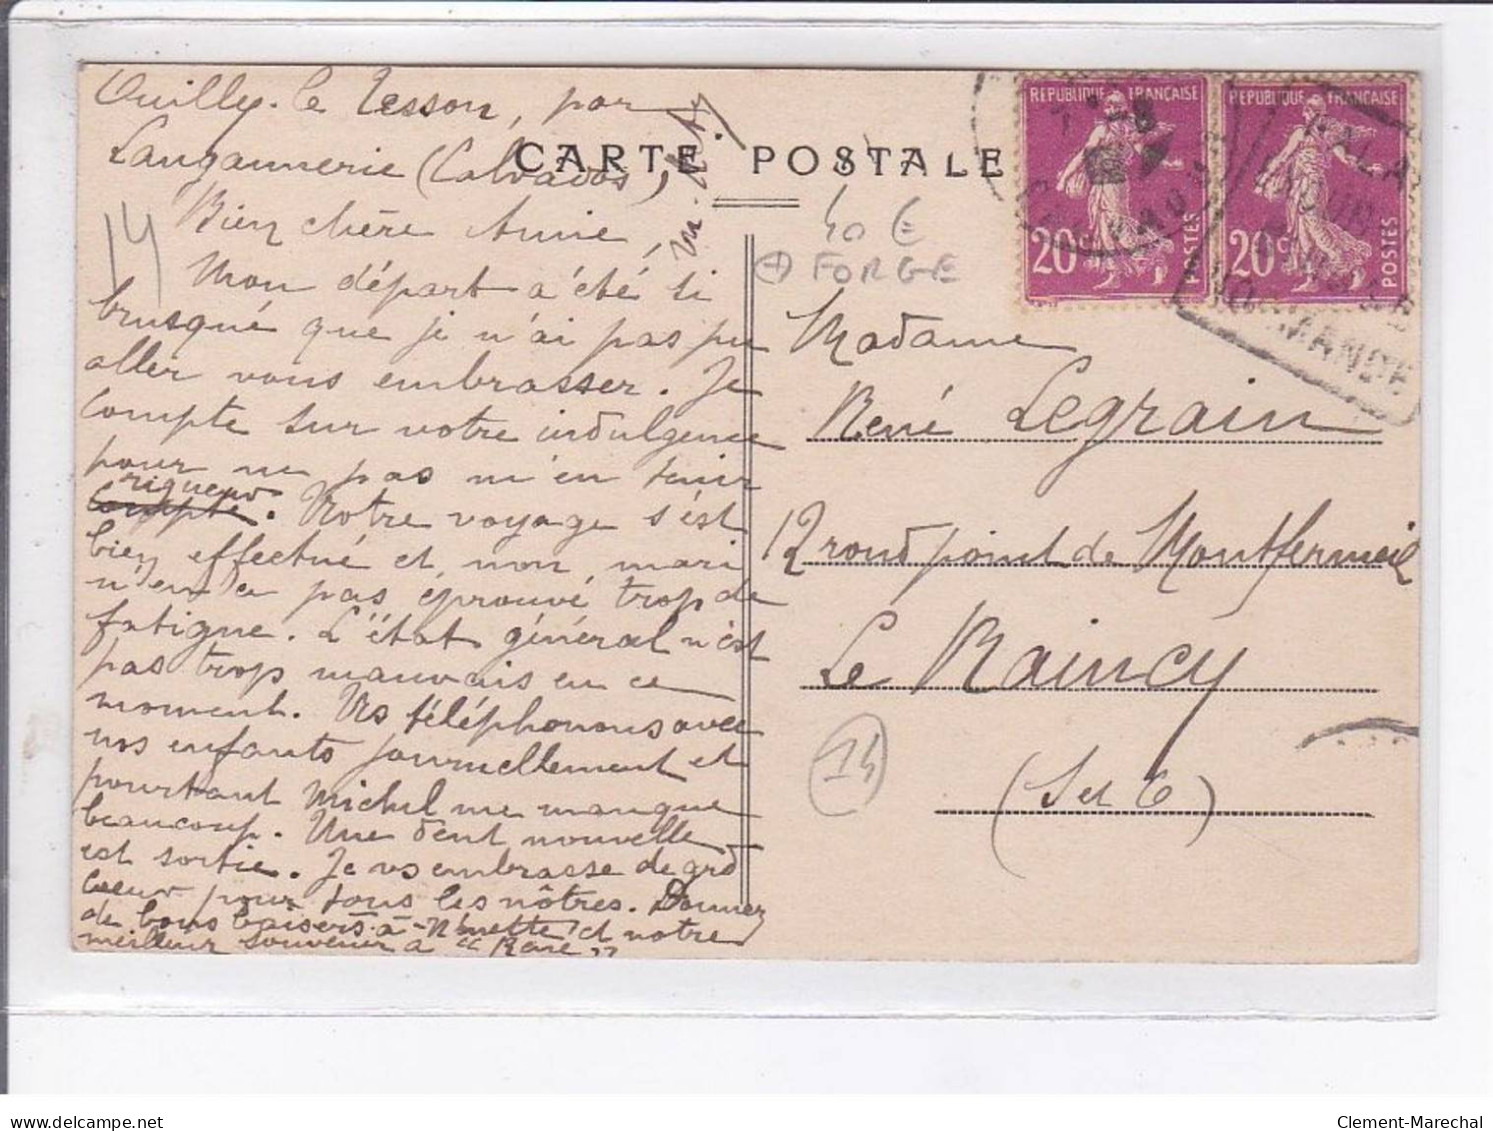 Ouilly-le Tesson, par
Langannerie (Calvados),
Bien chère Amie,
Mon départ a été si
brusqué que je n'ai pas pu
aller vous embrasser. Je
compte sur votre indulgence
pour ne pas m'en tenir
rigueur
compte. Notre voyage s'est
bien effectué et mon mari
n'en a pas éprouvé trop de
fatigue. L'état général n'est
pas trop mauvais en ce
moment. Ns téléphonons avec
nos enfants journellement et
pourtant Michel me manque
beaucoup. Une dent nouvelle
est sortie. Je vs embrasse de grd
coeur pour tous les nôtres. Donnez
de bons baisers à Nénette et notre
meilleur souvenir à "René"
14
CARTE POSTALE
40 €
+ FORGE
REPUBLIQUE FRANÇAISE
20c
POSTES
REPUBLIQUE FRANÇAISE
20c
POSTES
CALVADOS
FALA
NORMANDE
Madame
René Legrain
12 rond point de Montfermeil
Le Raincy
(S et O)
14
delcampe.net
Clement-Marechal